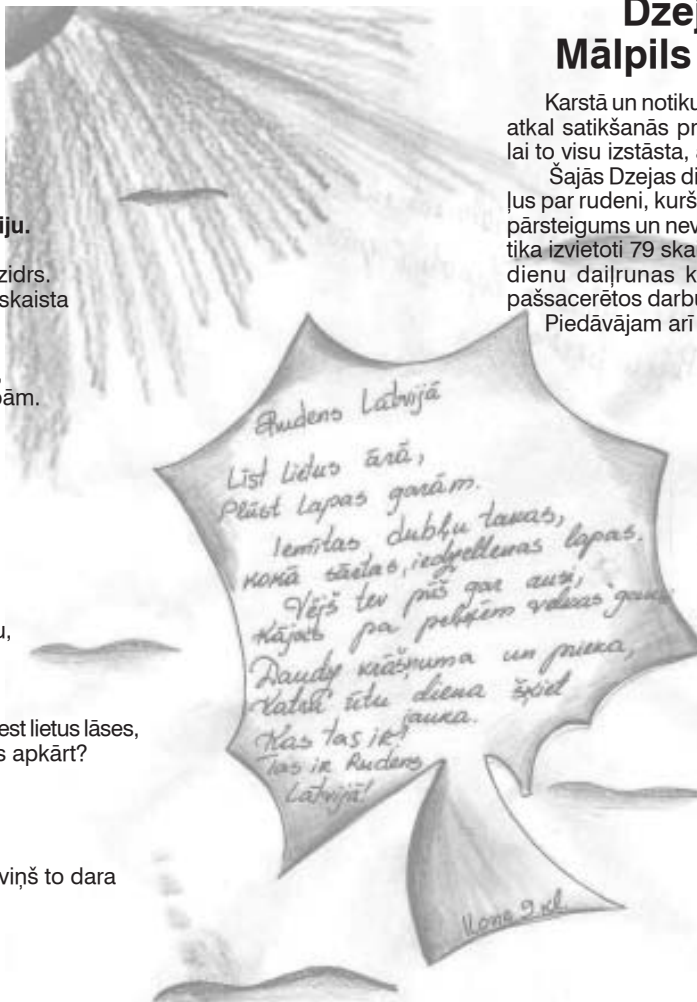 Dzej
Mālpils
Karstā un notiku
atkal satikšanās pr
lai to visu izstāsta,
Šajās Dzejas di
ļus par rudeni, kurš
pārsteigums un nev
tika izvietoti 79 ska
dienu daiļrunas k
pašsacerētos darbu
Piedāvājam arī
iju.
zidrs.
skaista
bām.
u,
est lietus lāses,
s apkārt?
viņš to dara
Rudens Latvijā
Līst Lietus ārā,
Plūst Lapas garām.
Iemītas dubļu takas,
Kokā sārtas, iedzeltenas lapas.
Vējš tev pūš gar ausi,
Kājas pa peļķēm
Daudz krāšņuma un prieka,
Katru diena šķiet
jauka.
Kas tas ir?
Tas ir Rudens
Latvijā!
9.kl.